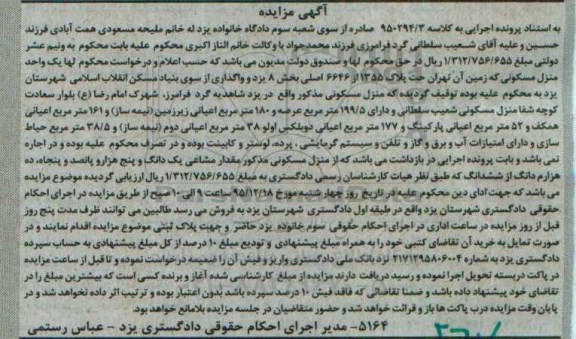 آگهی مزایده
به استناد پرونده اجرایی به کلاسه ۹۵۰۲۹۴/۳ صادره از سوی شعبه سوم دادگاه خانواده یزد له خانم ملیحه مسعودی همت آبادی فرزند
حسین و علیه آقای شعیب سلطانی گرد فرامرزی فرزند محمدجواد با وکالت خانم الناز اکبری محکوم علیه بابت محکوم به ونیم عشر
دولتی مبلغ ۱/۳۱۲/۷۵۶/۶۵۵ ریال در حق محکوم لها و صندوق دولت مدیون می باشد که حسب اعلام و درخواست محکوم لها یک واحد
منزل مسکونی که زمین آن تهران تحت پلاک ۱۳۵۵ از ۶۶۴۶ اصلی بخش ۸ یزد و واگذاری از سوی بنیاد مسکن انقلاب اسلامی شهرستان
یزد به محکوم علیه بوده توقیف گردیده که منزل مسکونی مذکور واقع در یزد شاهدیه گرد فرامرز، شهرک امام رضا (ع) بلوار سعادت
کوچه شفا منزل مسکونی شعیب سلطانی و دارای ۱۹۹/۵ متر مربع عرصه و ۱۸۰ متر مربع اعیانی زیرزمین (نیمه ساز) و ۱۶۱ متر اعیانی
همکف و ۵۲ متر اعیانی پارکینگ و ۱۷۷ متر مربع اعیانی دوبلکس اول و ۳۸ متر مربع اعیانی دوم (نیمه ساز) و ۳۸/۵ متر مربع حیاط
سازی و دارای امتیازات آب و برق و گاز و تلفن و سیستم گرمایشی، پرده، لوستر و کابینت بوده و در تصرف محکوم علیه بوده و در اجاره
نمی باشد و بابت پرونده اجرایی در بازداشت می باشد که از منزل مسکونی مذکور مقدار مشاعی یک دانگ و پنج هزار و پانصد و پنجاه، ده
هزارم دانگ از ششدانگ که طبق نظر هیات کارشناسان رسمی دادگستری به مبلغ ۱/۳۱۲/۷۵۶/۶۵۵ ریال ارزیابی گردیده موضوع مزایده
می باشد که جهت ادای دین محکوم علیه در تاریخ روز چهار شنبه مورخ ۹۵/۱۲/۱۸ ساعت ۹ الی ۱۰ صبح از طریق مزایده در اجرای احکام
حقوقی دادگستری شهرستان یزد واقع در طبقه اول دادگستری شهرستان یزد به فروش می رسد طالبین می توانند ظرف مدت پنج روز
قبل از روز مزایده در ساعت اداری در اجرای احکام حقوقی سوم خانواده یزد حاضر و جهت پلاک ثبتی موضوع مزایده اقدام نمایند و در
صورت تمایل به خرید آن تقاضای کتبی خود را به همراه مبلغ پیشنهادی و تودیع مبلغ ۱۰ درصد از کل مبلغ پیشنهادی به حساب سپرده
دادگستری یزد به شماره ۲۱۷۱۲۹۵۸۰۶۰۰۴ نزد بانک ملی دادگستری واریز و فیش آن را ضمیمه درخواست نموده و تا قبل از ساعت مزایده
در پاکت دربسته تحویل اجرا نموده و رسید دریافت دارند مزایده از مبلغ کارشناسی شده آغاز و برنده کسی است که بیشترین مبلغ را در
تقاضای خود پیشنهاد داده باشد و ضمنا تقاضائی که فاقد فیش ۱۰ درصد سپرده باشد بدون اعتبار بوده و ترتیب اثر داده نخواهد شد و در
پایان وقت مزایده درب پاکت ها باز و قرائت خواهد شد و حضور متقاضیان در جلسه مزایده بلامانع خواهد بود.
۵۱۶۴- مدیر اجرای احکام حقوقی دادگستری یزد - عباس رستمی